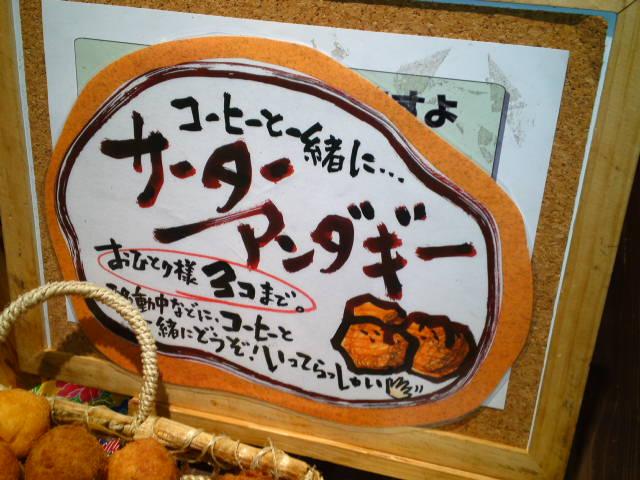 すよ
コーヒーと一緒に…
サーター
アンダギー
おひとり様 3コまで。
移動中などに、コーヒーと
一緒にどうぞ!いってらっしゃい